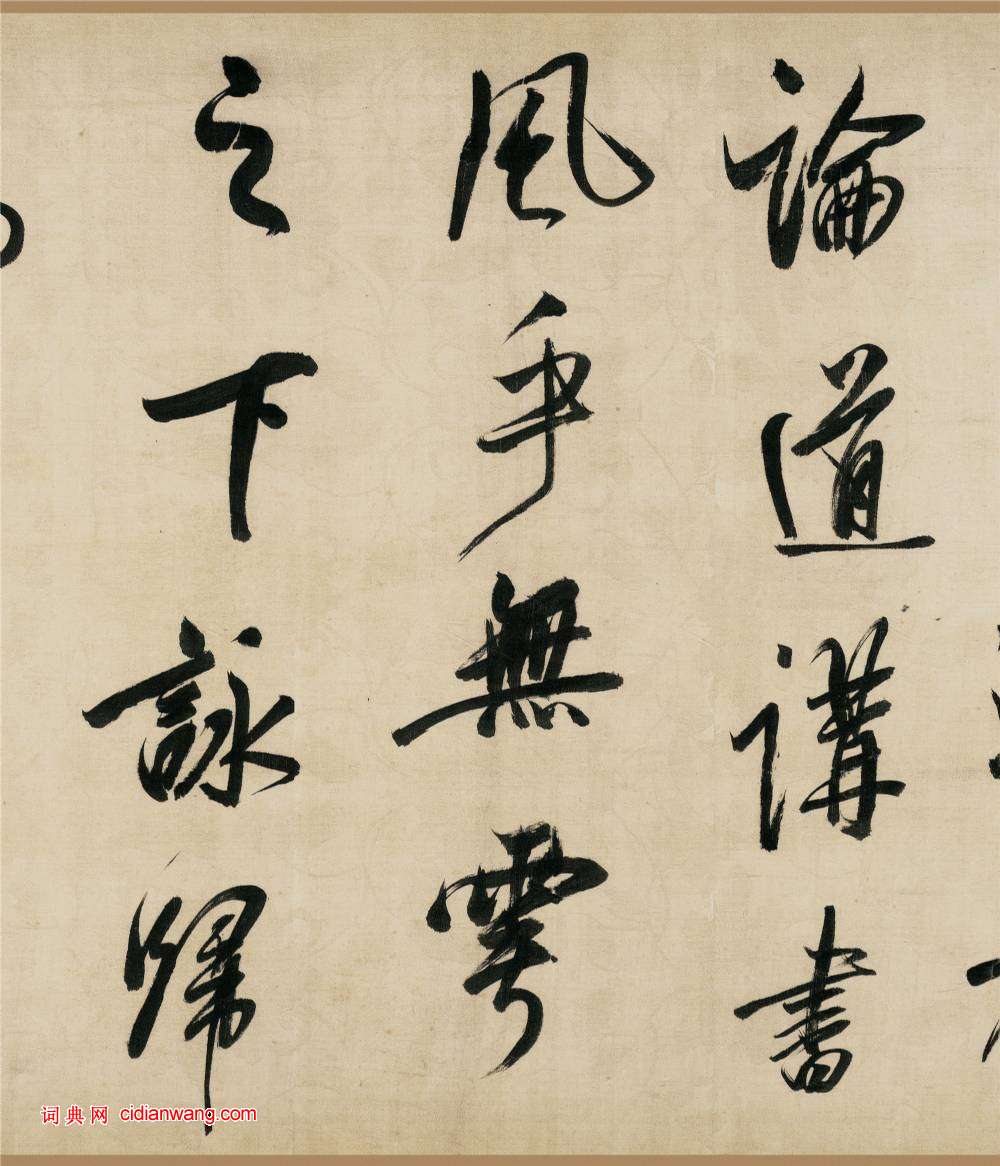 論道講書
風乎無雩
之下詠歸
词典网 cidianwang.com